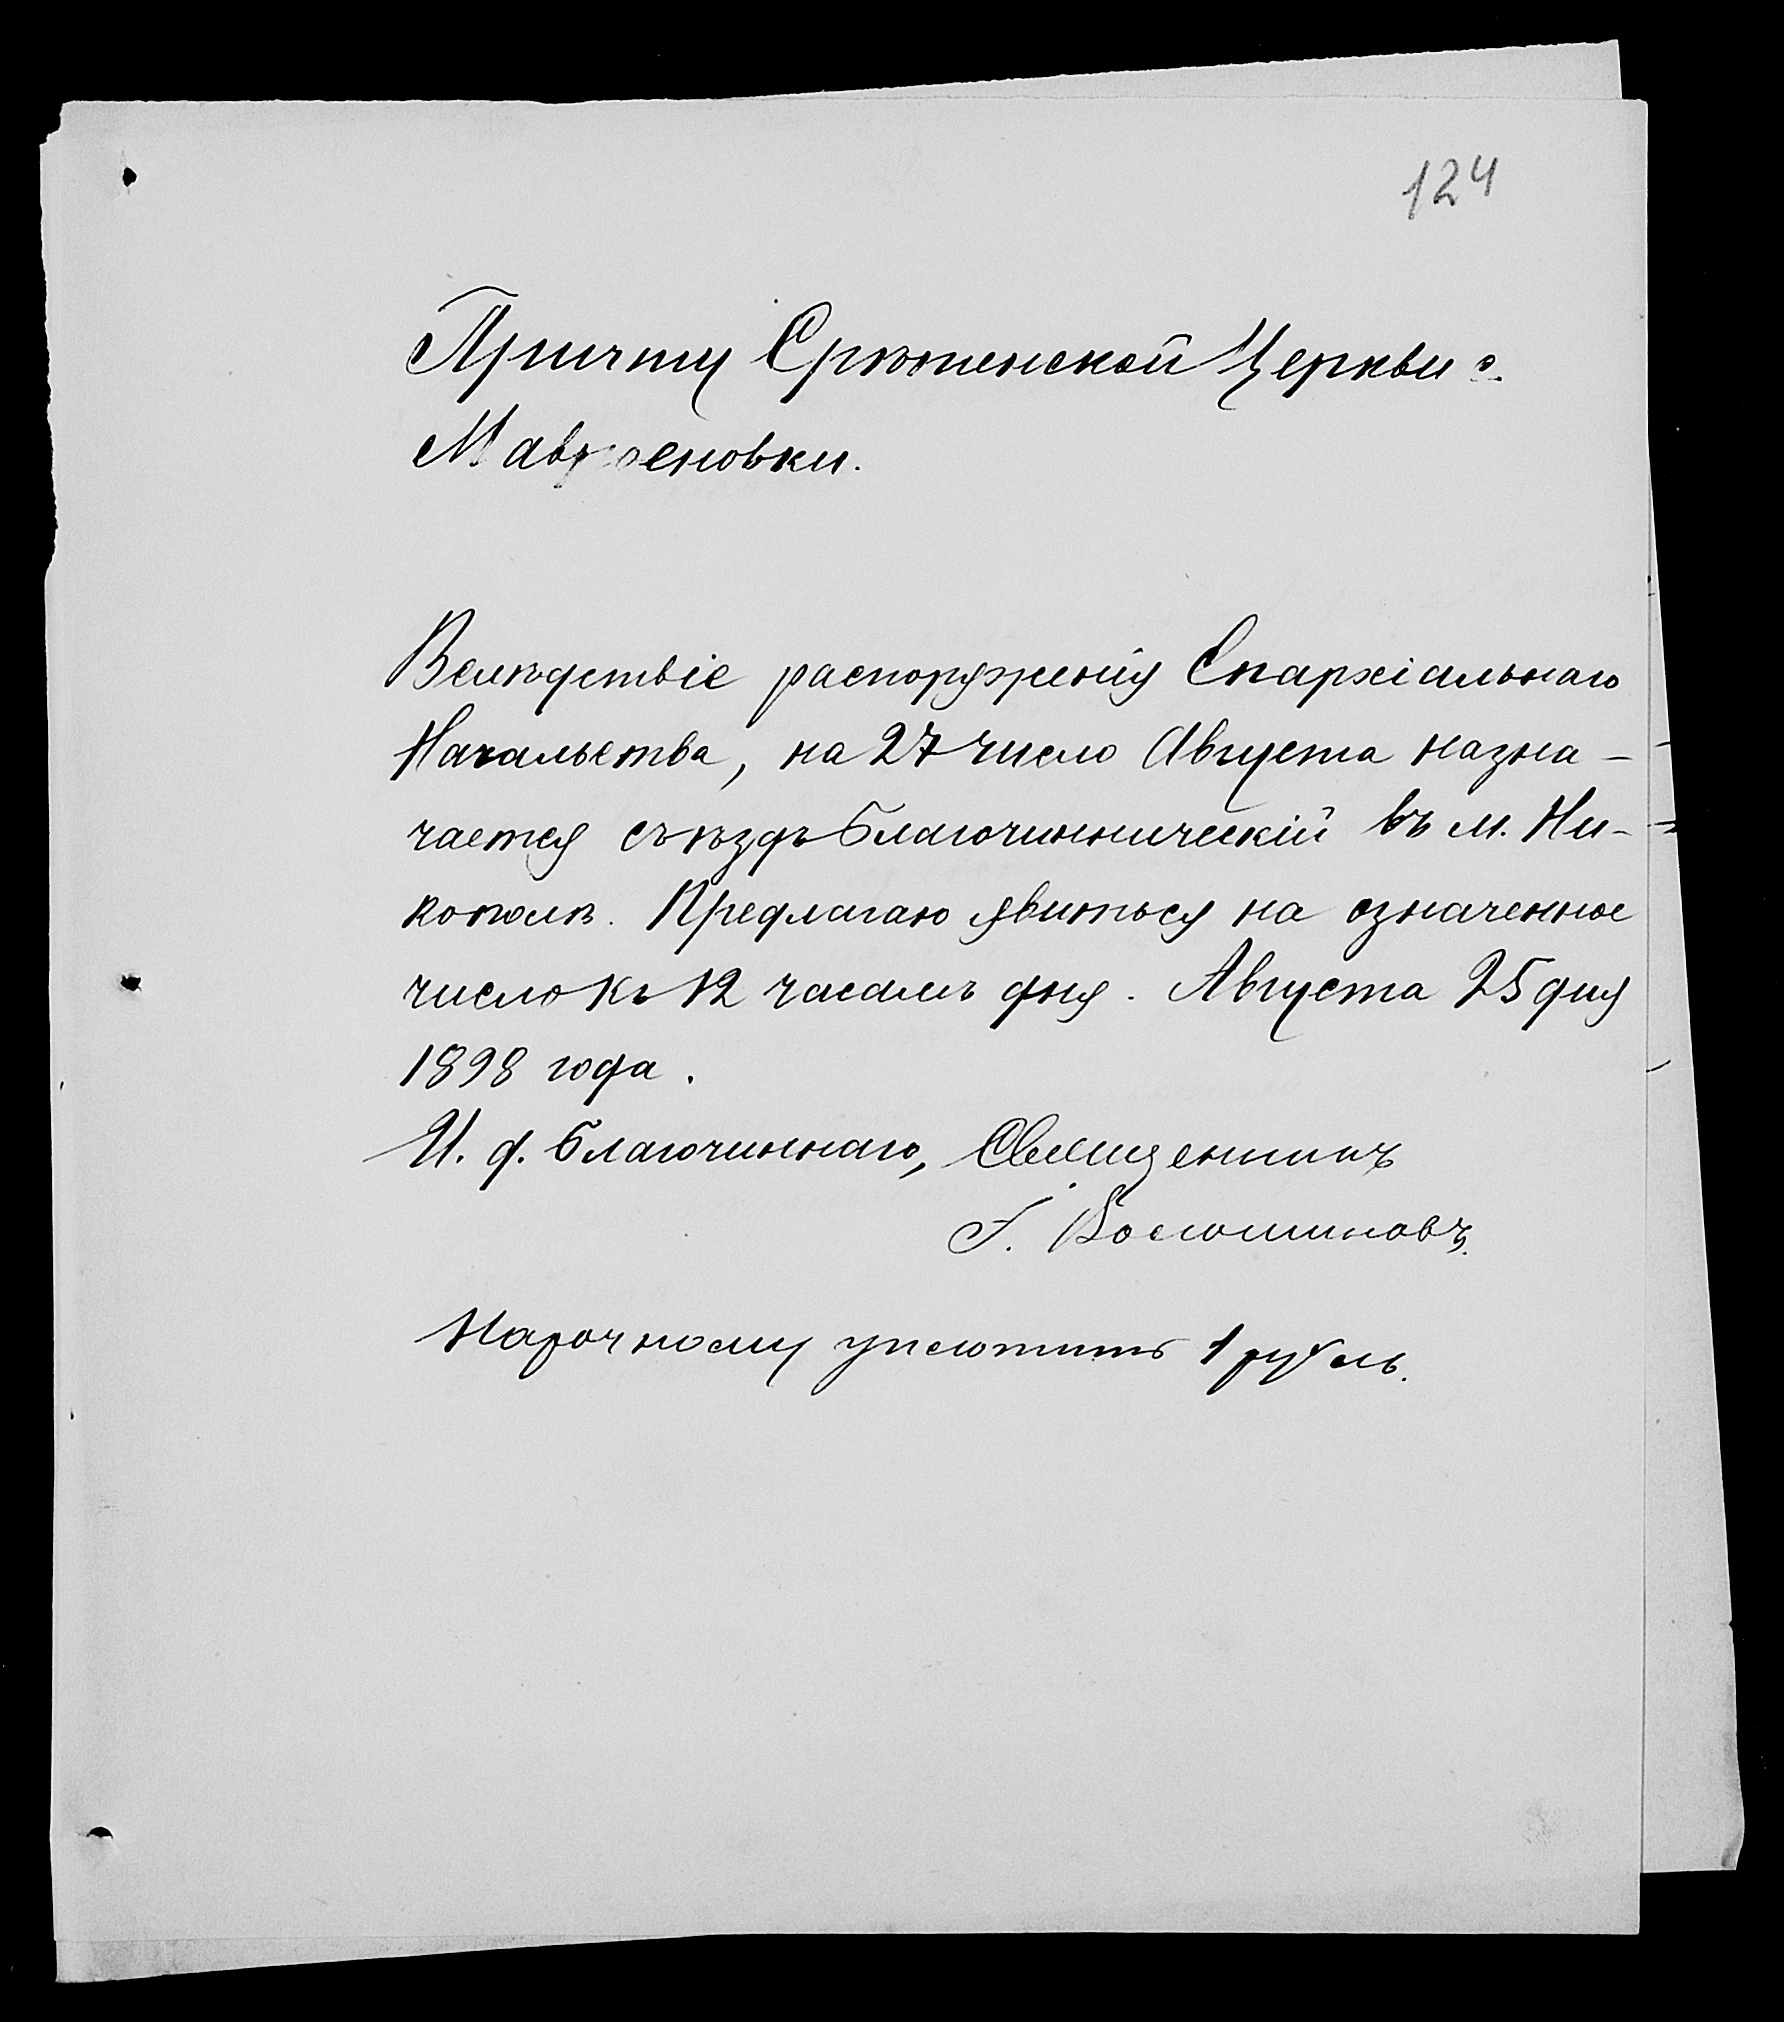 124
Причту Срѣтенской Церкви с.
Вслѣдствіе распоряженія Епархіальнаго
Начальства, на 27 число Августа назна-
чается съѣздъ Благочинническій въ м. Ни-
кополѣ. Предлагаю явиться на означенное
число къ 12 часамъ дня. Августа 25 дня
1898 года.
И. д. Благочиннаго, Священникъ
Г. Волошиновъ.
Нарочному уплотить 1 рубль.